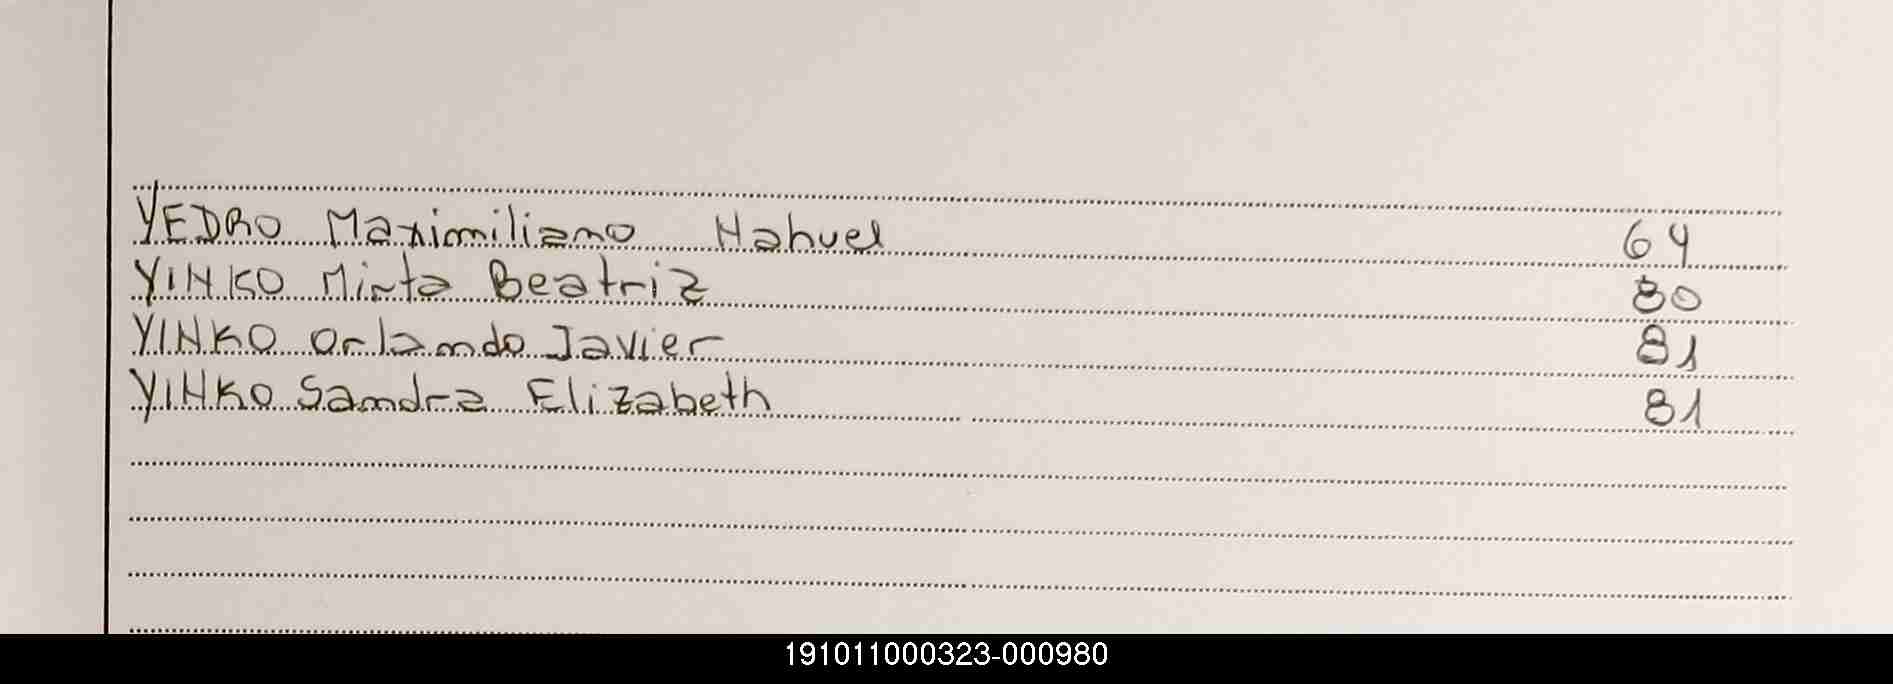 YEDRO Maximiliano Nahuel 64
YINKO Mirta Beatriz 80
YINKO Orlando Javier 81
YINKO Sandra Elizabeth 81
191011000323-000980